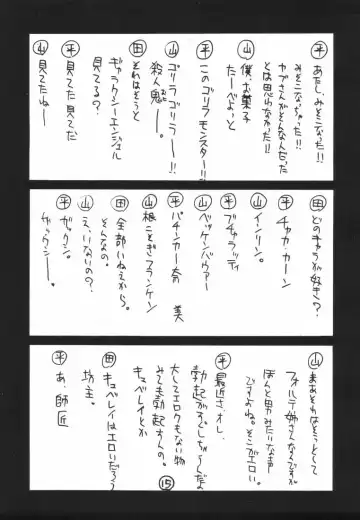 ㊥ あたし、みそこなった!!
みそこなっちゃった!!
ヤブさんがそんなんだった
とは思わなかった!!
㊤ 僕、お菓子
たーべよっと
㊥ このゴリラモンスター!!
㊤ ゴリラゴリラー!!
殺人鬼ー。
㊥ それはそうと
ギャラクシーエンジェル
見てる?
平 見てた見てた
山 見てたねー
田 どのキャラが好き?
平 チャカ・カーン
山 インリン。
平 ブチャラッティ
山 ベッケンバウアー
平 パチンカー奈美
山 根こそぎフランケン
田 全部いねえから。
そんなの。
山 え、いないの?
平 ガックシ。
ゲックシー。
山 まあそれはそうとして
フォルテ姉さんなんですが
ほんと男みたいな声
ですよね。そこがエロい。
平 最近さ、オレ
勃起がすごしちゃってんだよ
大してエロくもない物
みても勃起すんの。
キュベレイとか
田 キュベレイはエロいだろう
坊主。
平 あ、師匠
15